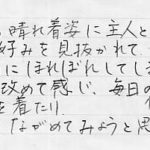 晴れ着姿に主人と
好みを見抜かれて
にほればれしてしま
改めて感じ、毎日の
を着たり
ながめてみようと思